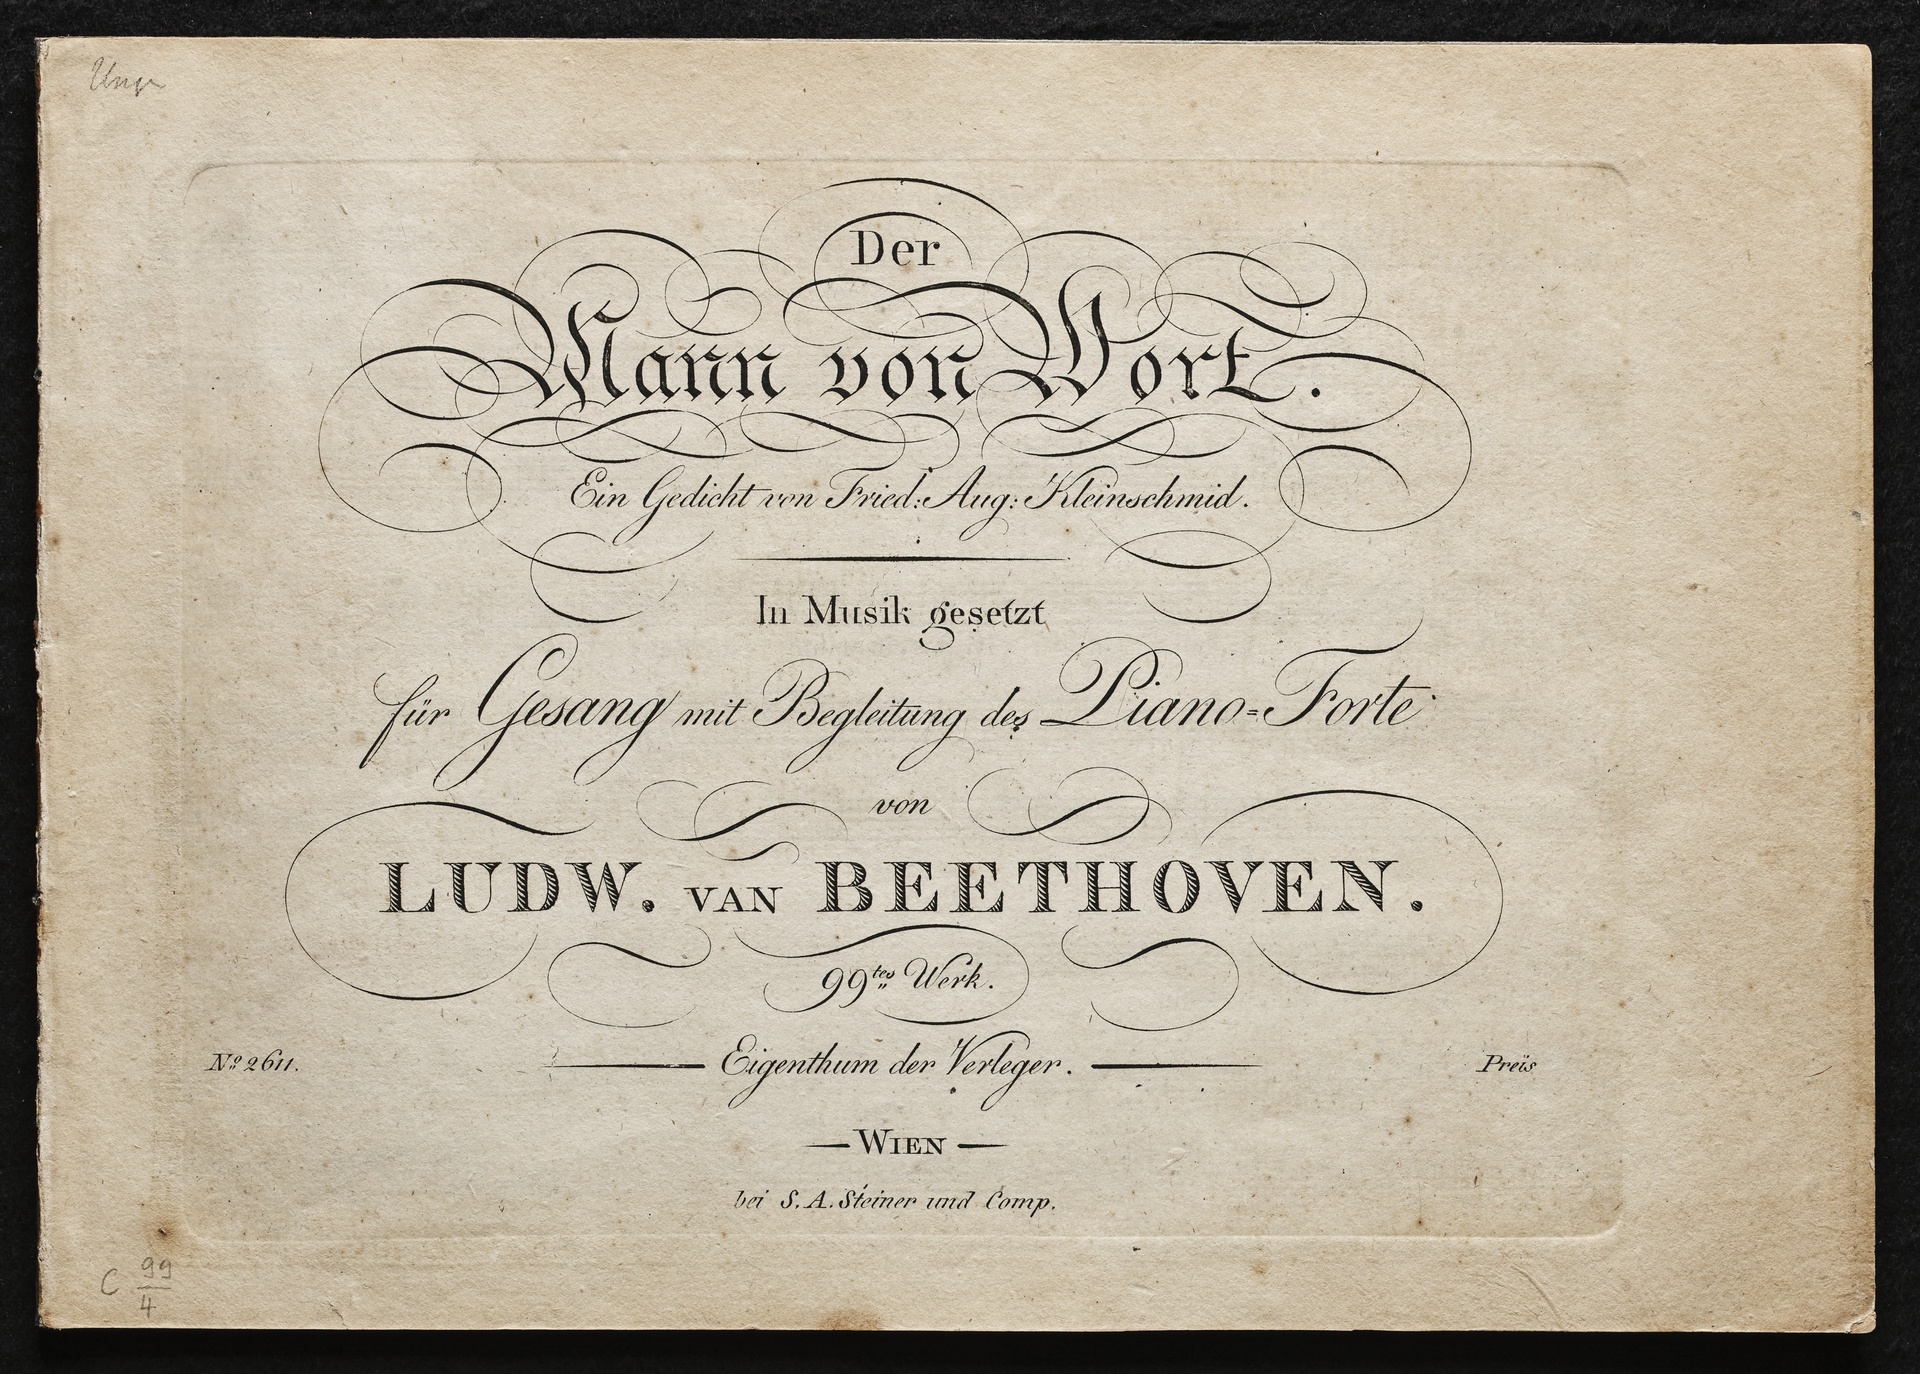 Der
Mann von Wort.
Ein Gedicht von Fried: Aug: Kleinschmid.
In Musik gesetzt
für Gesang mit Begleitung des Piano=Forte
von
LUDW. VAN BEETHOVEN.
99tes Werk.
No 2611. Eigenthum der Verleger. Preis
WIEN
bei S. A. Steiner und Comp.
C 99/4